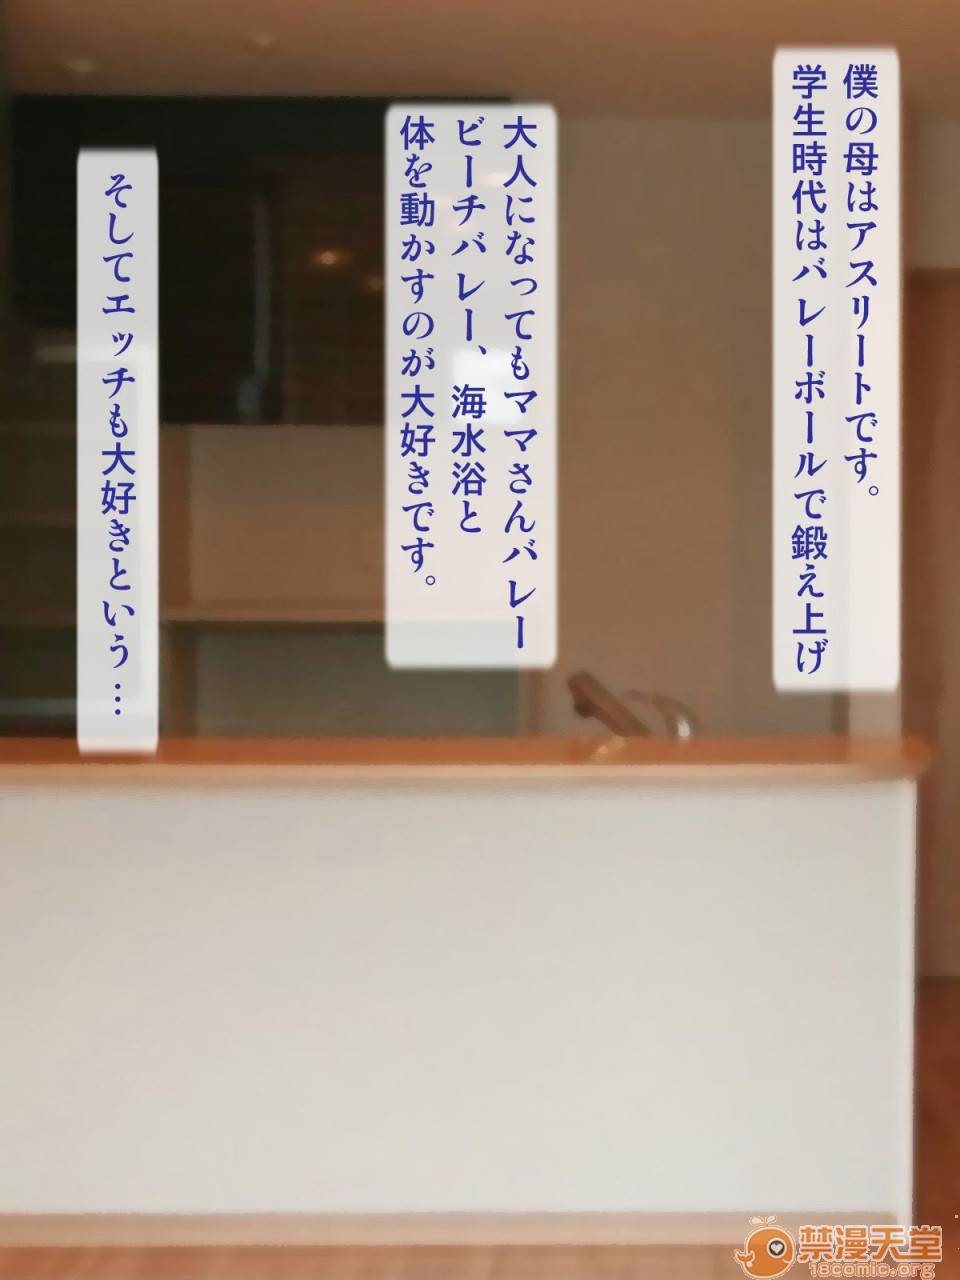 僕の母はアスリートです。
学生時代はバレーボールで鍛え上げ
大人になってもママさんバレー
ビーチバレー、海水浴と
体を動かすのが大好きです。
そしてエッチも大好きという…
禁漫天堂
18comic.org